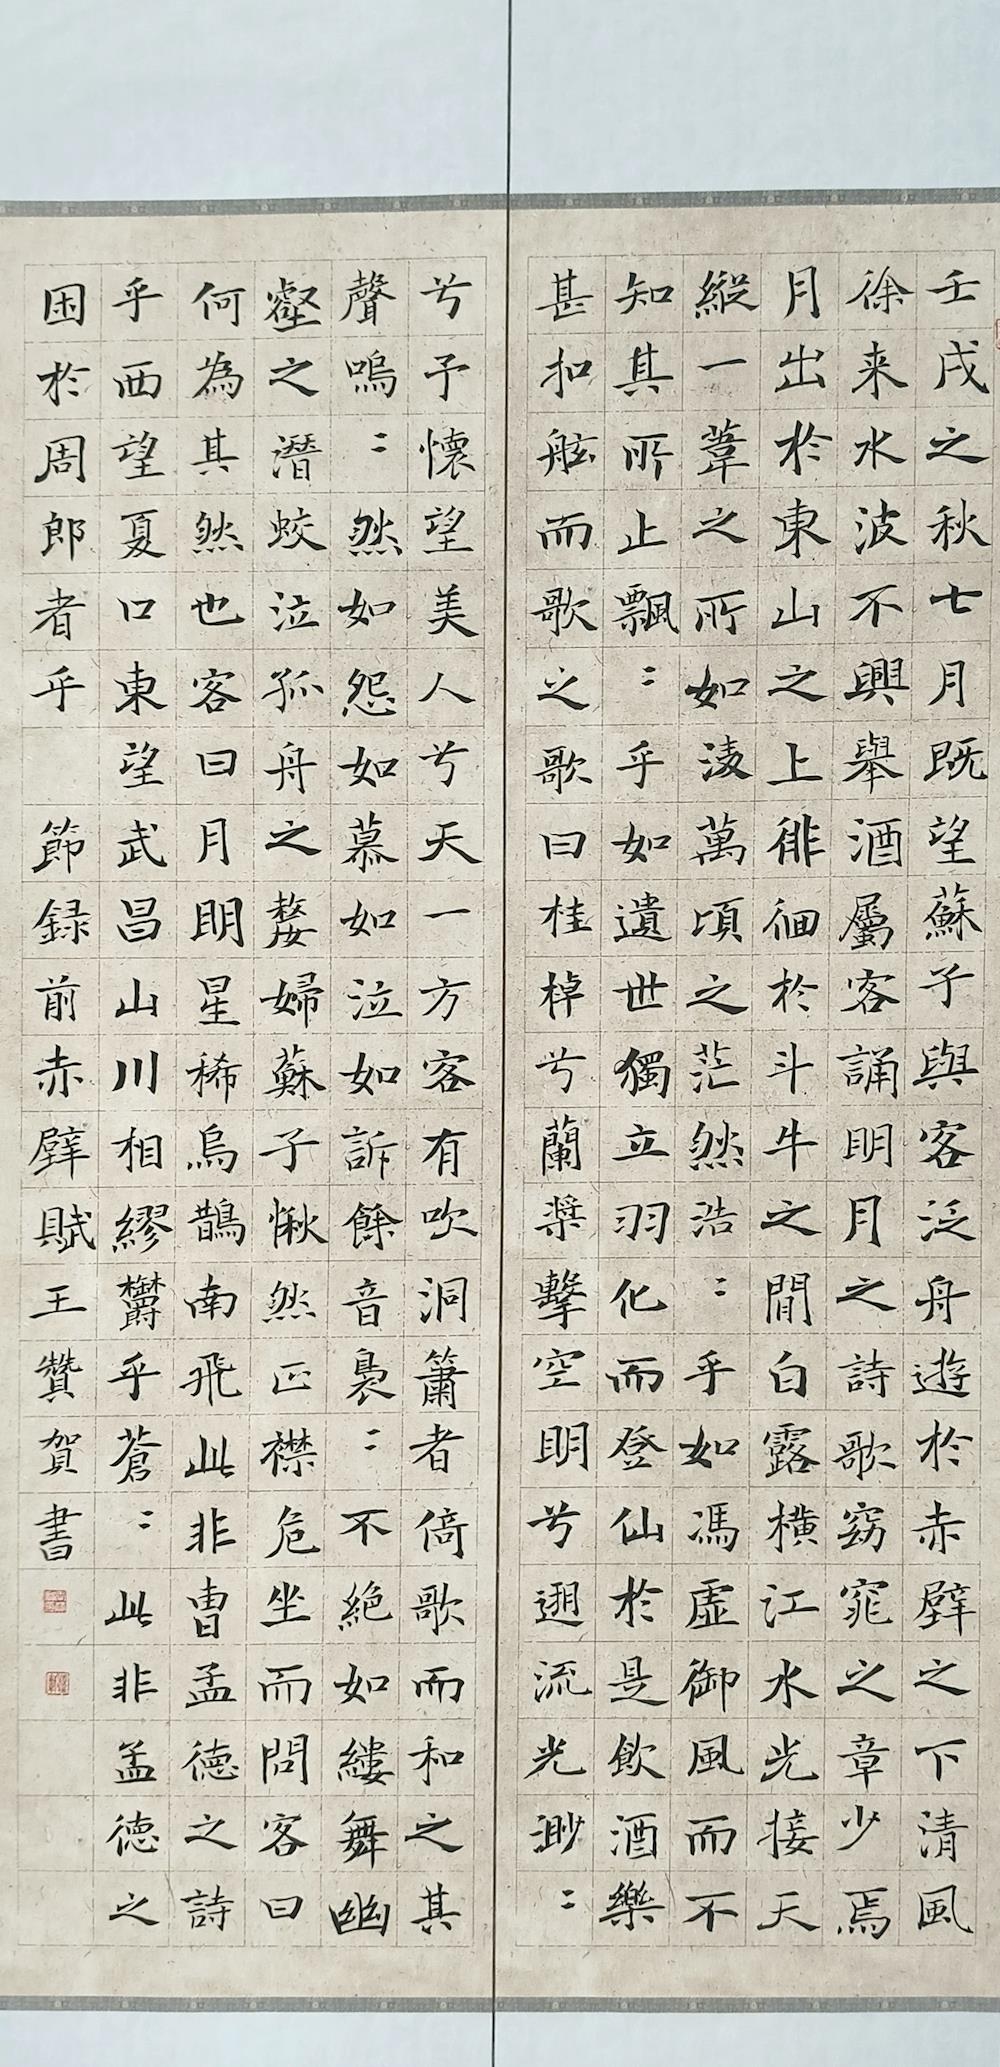 壬戌之秋七月既望蘇子與客泛舟遊於赤壁之下清風
徐来水波不興舉酒屬客誦明月之詩歌窈窕之章少焉
月出於東山之上徘徊於斗牛之間白露横江水光接天
縱一葦之所如凌萬頃之茫然浩〻乎如馮虛御風而不
知其所止飄〻乎如遺世獨立羽化而登仙於是飲酒樂
甚扣舷而歌之歌曰桂棹兮蘭槳擊空明兮遡流光渺〻
兮予懷望美人兮天一方客有吹洞簫者倚歌而和之其
聲嗚〻然如怨如慕如泣如訴餘音裊〻不絶如縷舞幽
壑之潛蛟泣孤舟之嫠婦蘇子愀然正襟危坐而問客曰
何為其然也客曰月明星稀烏鵲南飛此非曹孟德之詩
乎西望夏口東望武昌山川相繆鬱乎蒼〻此非孟德之
困於周郎者乎 節録前赤壁賦王贊賀書